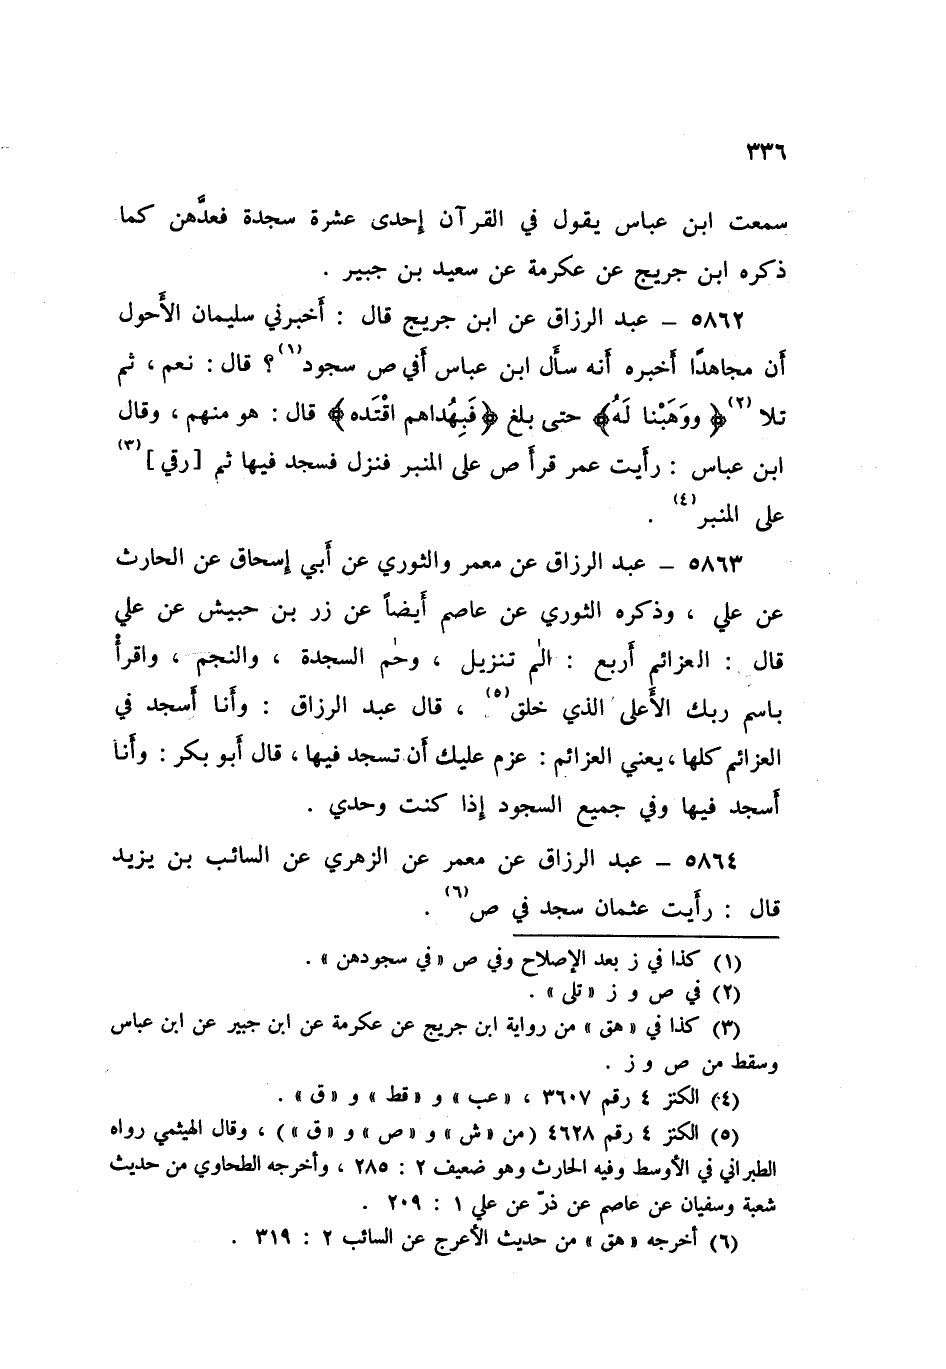 ٣٣٦
سمعت ابن عباس يقول في القرآن إحدى عشرة سجدة فعدَّهن كما
ذكره ابن جريج عن عكرمة عن سعيد بن جبير .
٥٨٦٢ – عبد الرزاق عن ابن جريج قال : أخبرني سليمان الأَحول
أَن مجاهدًا أَخبره أَنه سأَل ابن عباس أَفي ص سجود(١) ؟ قال : نعم ، ثم
تلا(٢) ﴿ ووَهَبْنا لَهُ﴾ حتى بلغ ﴿فَبِهُداهم اقْتَده﴾ قال : هو منهم ، وقال
ابن عباس : رأَيت عمر قرأَ ص على المنبر فنزل فسجد فيها ثم [رقي](٣)
على المنبر(٤) .
٥٨٦٣ – عبد الرزاق عن معمر والثوري عن أَبي إسحاق عن الحارث
عن علي ، وذكره الثوري عن عاصم أَيضاً عن زر بن حبيش عن علي
قال : العزائم أَربع : الٰم تنزيل ، وحٰم السجدة ، والنجم ، واقرأْ
باسم ربك الأَعلى الذي خلق(٥) ، قال عبد الرزاق : وأَنا أَسجد في
العزائم كلها ، يعني العزائم : عزم عليك أَن تسجد فيها ، قال أَبو بكر : وأَنا
أَسجد فيها وفي جميع السجود إذا كنت وحدي .
٥٨٦٤ – عبد الرزاق عن معمر عن الزهري عن السائب بن يزيد
قال : رأَيت عثمان سجد في ص(٦) .
(١) كذا في ز بعد الإصلاح وفي ص « في سجودهن » .
(٢) في ص و ز « تلى » .
(٣) كذا في « هق » من رواية ابن جريج عن عكرمة عن ابن جبير عن ابن عباس
وسقط من ص و ز .
(٤) الكنز ٤ رقم ٣٦٠٧ ، « عب » و « قط » و « ق » .
(٥) الكنز ٤ رقم ٤٦٢٨ (من « ش » و « ص » و « ق » ) ، وقال الهيثمي رواه
الطبراني في الأوسط وفيه الحارث وهو ضعيف ٢ : ٢٨٥ ، وأخرجه الطحاوي من حديث
شعبة وسفيان عن عاصم عن ذرّ عن علي ١ : ٢٠٩ .
(٦) أخرجه « هق » من حديث الأعرج عن السائب ٢ : ٣١٩ .